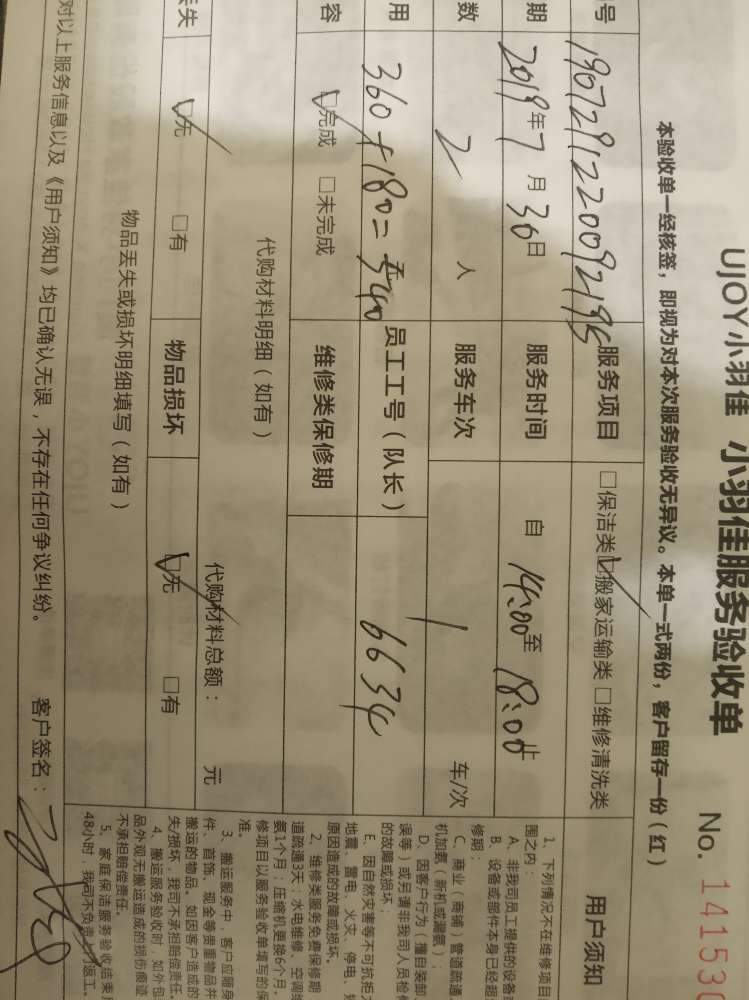 UJOY小羽佳 小羽佳服务验收单
No. 141530
本验收单一经核签，即视为对本次服务验收无异议。本单一式两份，客户留存一份（红）
号 1907291220092195 服务项目 □保洁类 ☑搬家运输类 □维修清洗类 用户须知
期 2019年7月30日 服务时间 自 14:00 至 18:00 止
数 2 人 服务车次 1 车/次
用 360+180=540 员工工号（队长） 6634
容 ☑完成 □未完成 维修类保修期
代购材料明细（如有）
代购材料总额： 元
丢失 ☑无 □有 物品损坏 ☑无 □有
物品丢失或损坏明细填写（如有）
对以上服务信息以及《用户须知》均已确认无误，不存在任何争议纠纷。 客户签名：
1、下列情况不在维修项目
围之内：
A、非我司员工提供的设备或
B、设备或部件本身已经超
修期；
C、商业（商铺）管道疏通
机加氨（新机或漏氨）；
D、因客户行为（擅自装卸、
误等）或另请非我司人员检修
的故障或损坏；
E、因自然灾害等不可抗拒力
地震、雷电、火灾、停电、
原因造成的故障或损坏。
2、维修类服务免费保修期
道疏通3天；水电维修、空调维
氨1个月；压缩机更换6个月，
修项目以服务验收单填写的保
准。
3、搬运服务中，客户应随身
件、首饰、现金等贵重物品并
搬运的物品。如因客户造成的
失/损坏，我司不承担赔偿责任。
4、搬运服务验收时，如外包
品外观无搬运造成的损伤痕迹
不承担赔偿责任。
5、家庭保洁服务验收结束后
48小时，我司不负责 返工。